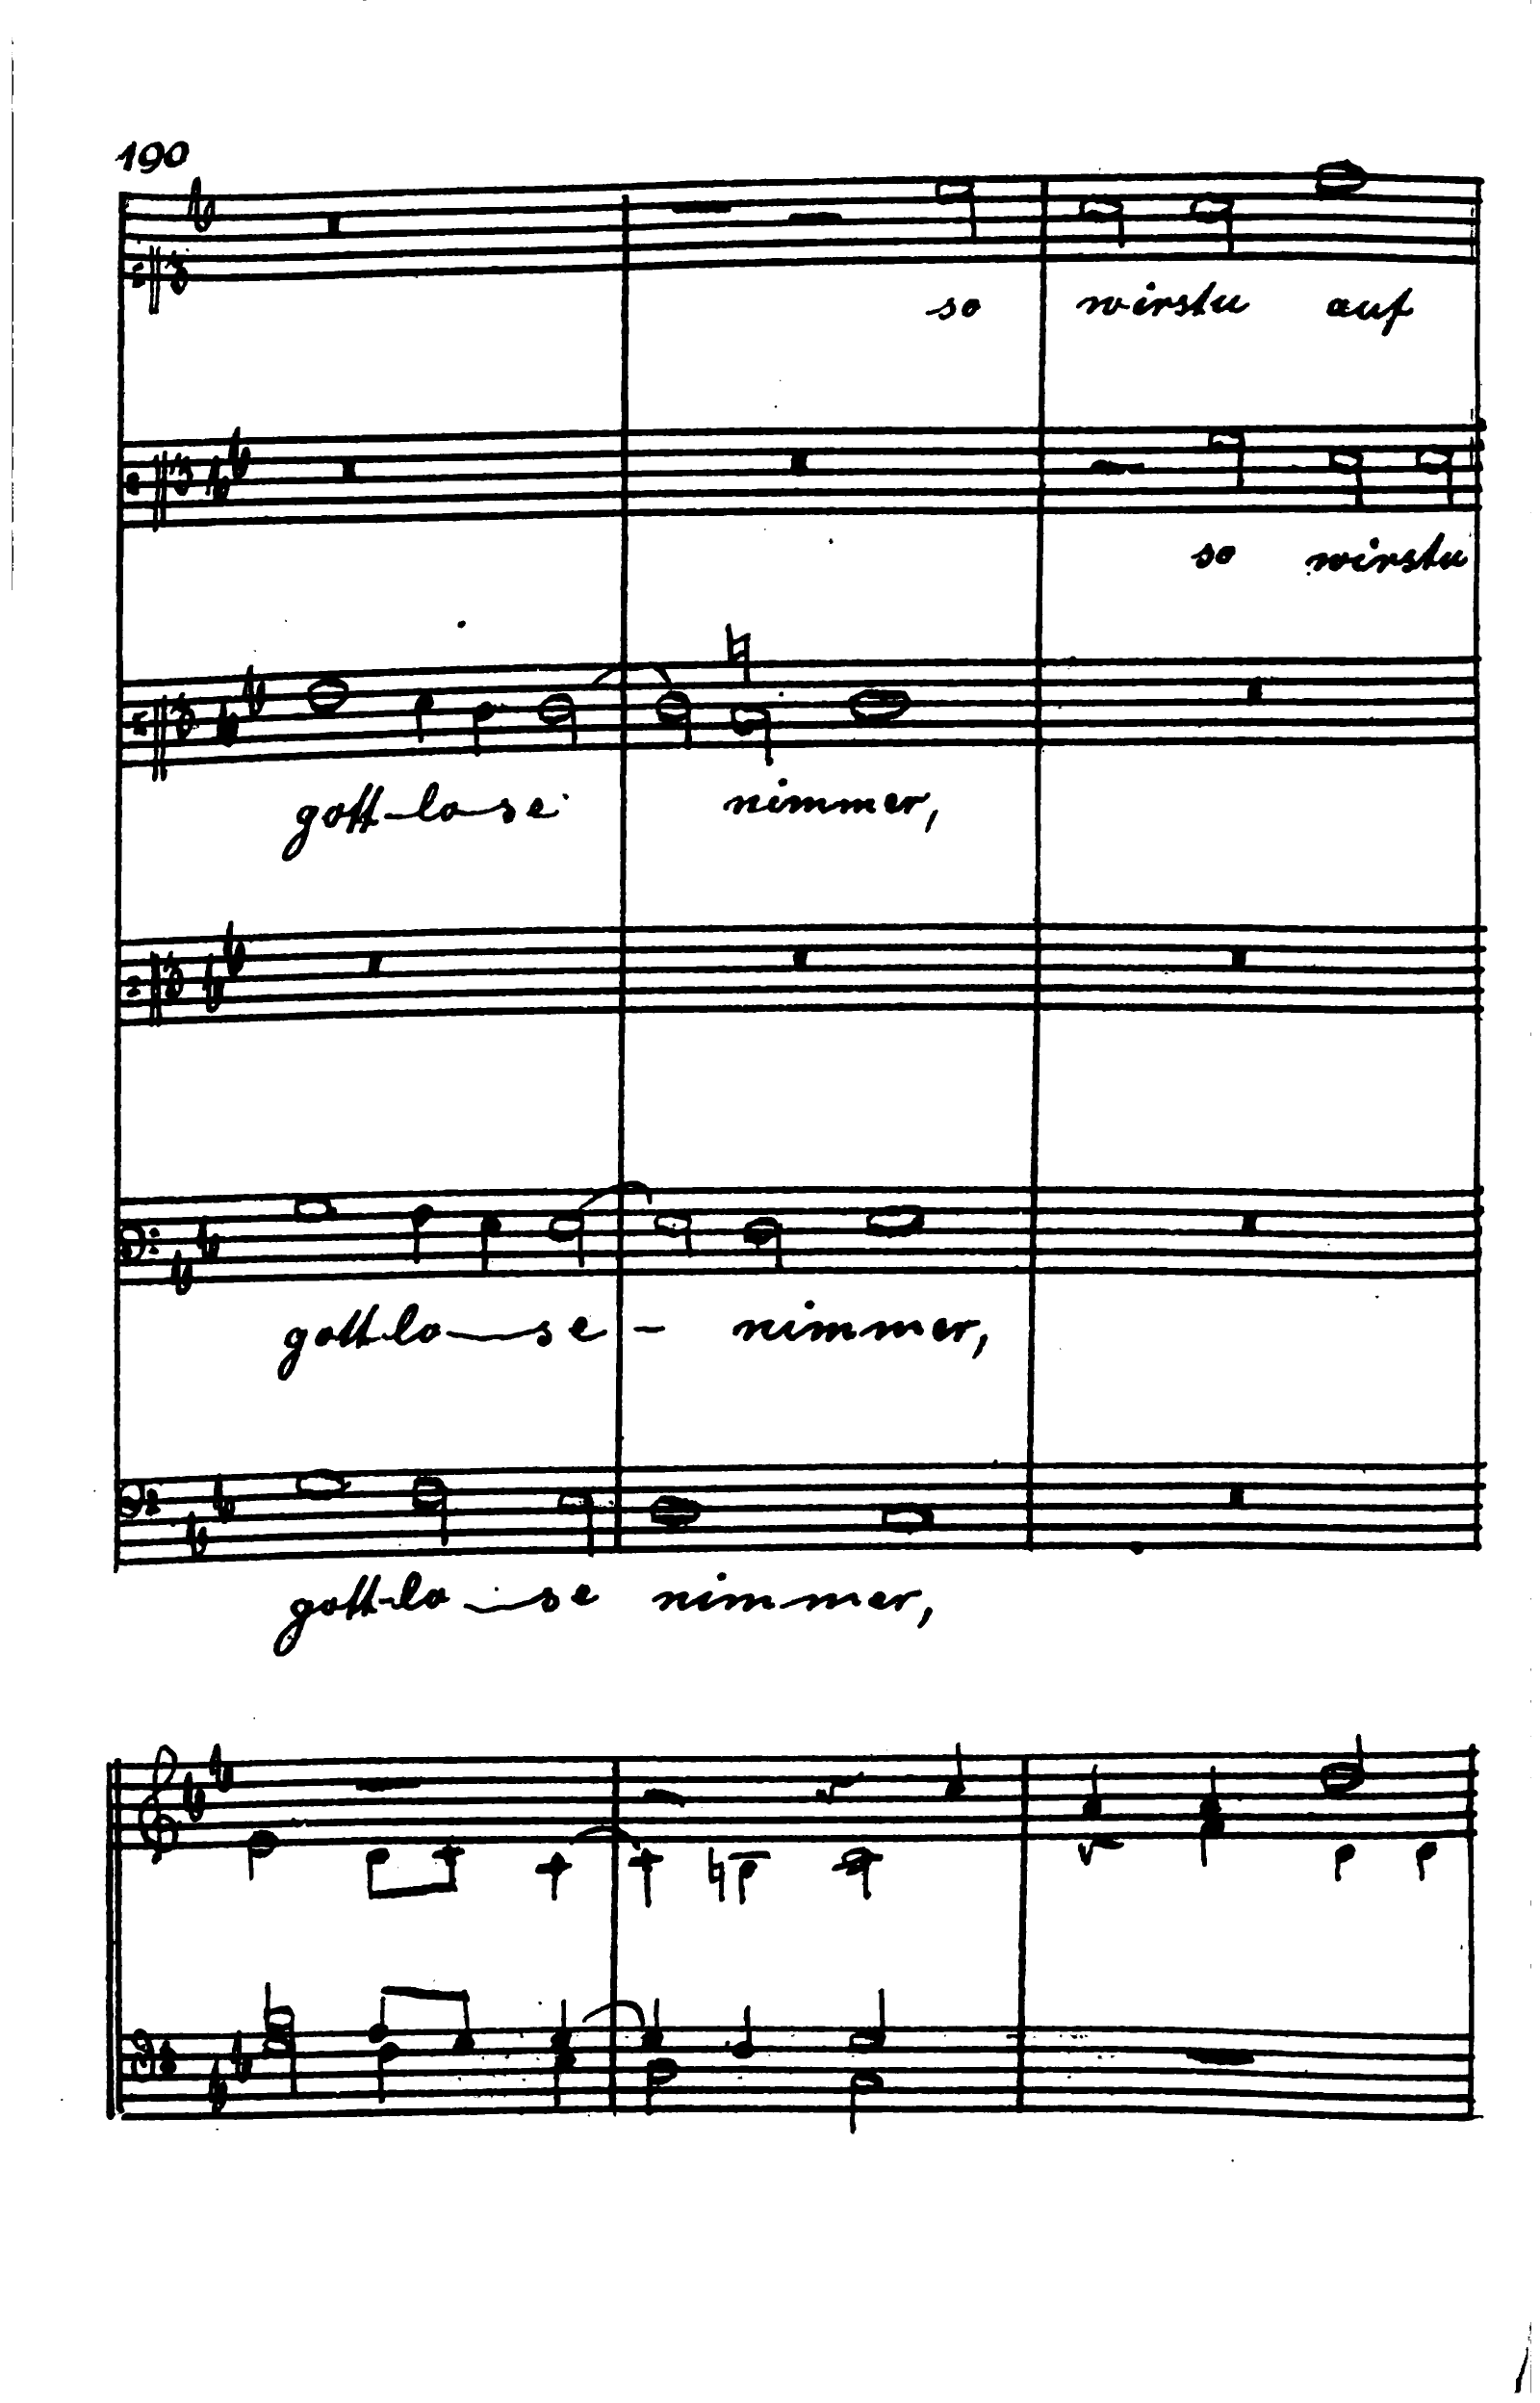 190
so wirstu auf
so wirstu
gott-lo-se nimmer,
gott-lo-se - nimmer,
gott-lo-se nimmer,